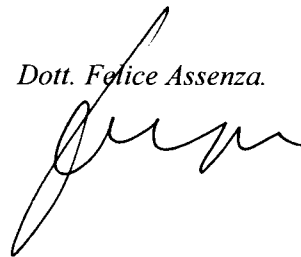 Dott. Felice Assenza.